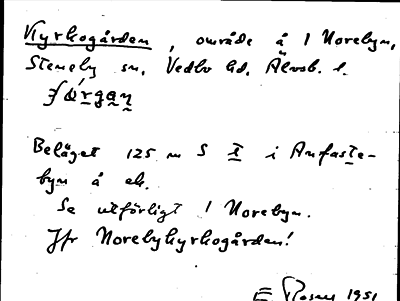 Kyrkogården, område å 1 Norebyn,
Steneby sn, Vedbo hd, Älvsb. l.
Beläget 125 m S t i Anfaste-
byn å ek.
Se utförligt 1 Norebyn.
Jfr Norebykyrkogården!
E Rosen 1951